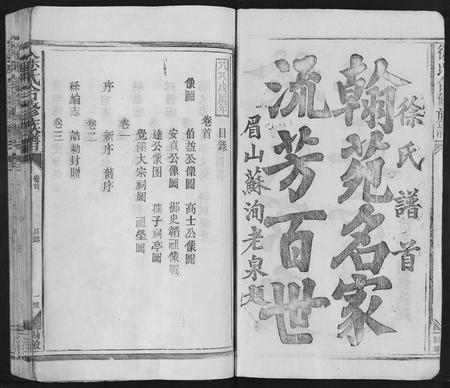 徐氏譜首
翰苑名家
流芳百世
眉山蘇洵老泉題
目錄
卷首
像圖
伯益公像圖 高士公像圖
安貞公像圖 御史韜祖像圖
達公像圖 孺子祠亭圖
覺溪大宗祠圖 祖塋圖
卷一
序 新序 舊序
卷二
絲綸志 誥勅封贈
卷三
卷首
目錄